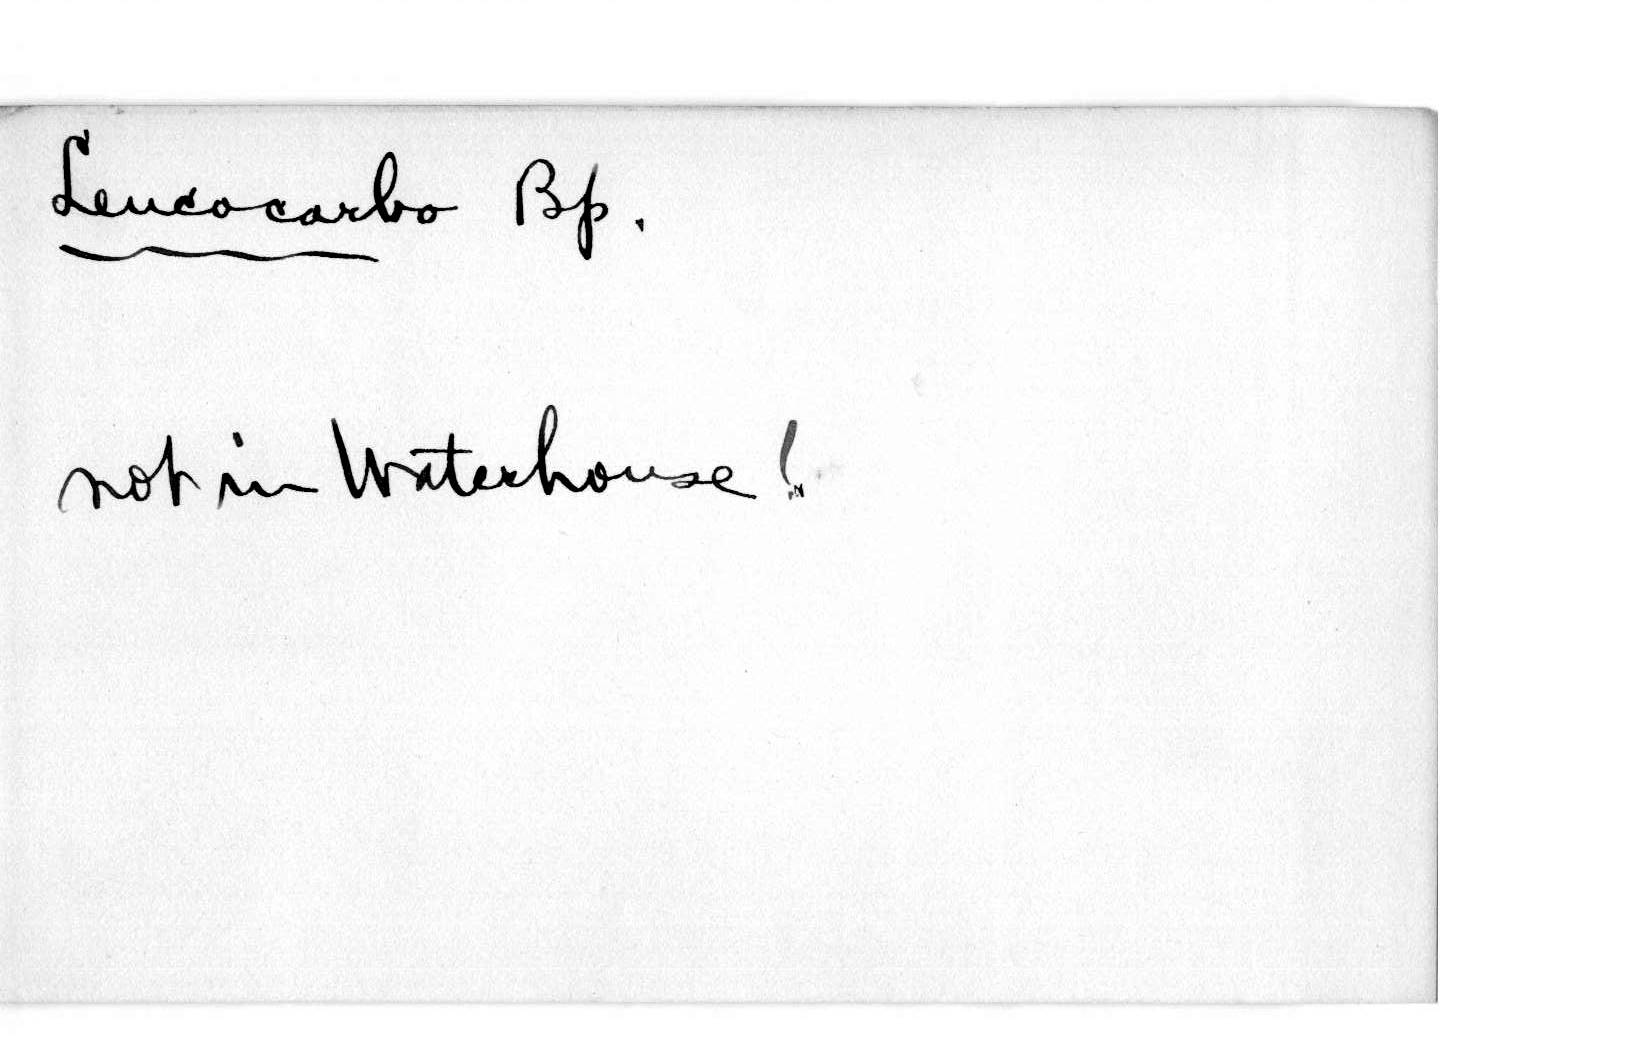 Leucocarbo Bp.
not in Waterhouse!